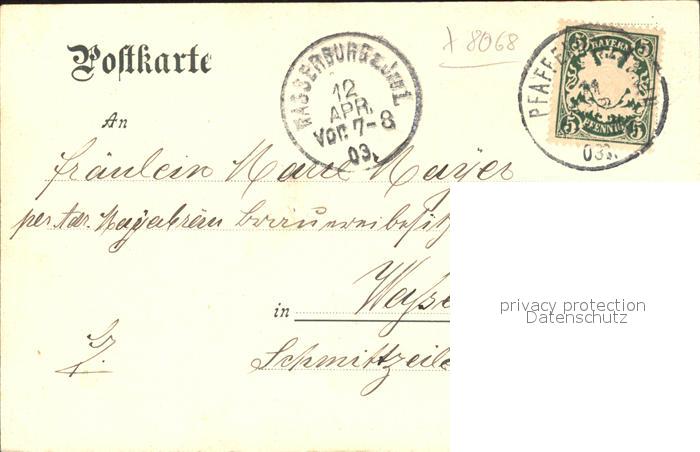 8068
Postkarte
WASSERBURG a. Inn 1
12
APR.
Vor. 7-8
03.
PFAFFE
03.
BAYERN
5 5
5 5
PFENNIG
An
Fräulein Marie Mayer
per Adr. brauereibesitz
in Wasse
Schmittzeile
privacy protection
Datenschutz